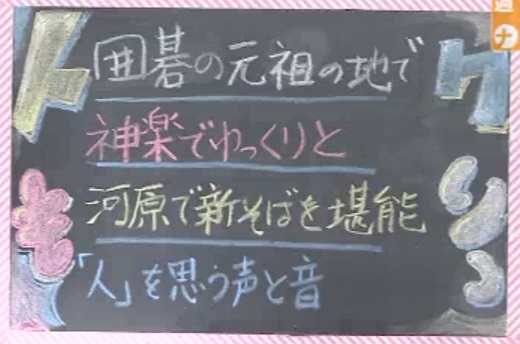 囲碁の元祖の地で
神楽でゆっくりと
河原で新そばを堪能
「人」を思う声と音